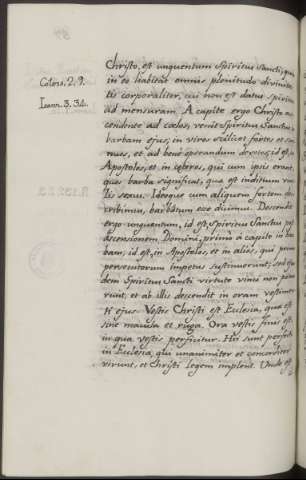 Christo, est unguentum Spiritus Sancti, quia
Coloss. 2. 9.
in eo habitat omnis plenitudo divinita-
tis corporaliter, cui non est datus spiritus
Joann. 3. 34.
ad mensuram. A capite ergo Christo a-
scendente ad cœlos, venit Spiritus Sanctus in
barbam ejus, in viros scilicet fortes et for-
mes, et ad bene operandum strenuos, id est, in
Apostolos, et in ceteros, qui cum ipsis erant,
quos barba significat, quæ est inditium vi-
rilis sexus. Ideoque cum aliquem fortem de-
scribimus, barbatum esse dicimus. Descendit
ergo unguentum, id est, Spiritus Sanctus post
ascensionem Domini, primo a capite in bar-
bam, id est, in Apostolos, et in alios, qui primi
persecutorum impetus sustinuerunt; sed ea-
dem Spiritus Sancti virtute vinci non potue-
runt, et ab illis descendit in oram vestimen-
ti ejus. Vestis Christi est Ecclesia, quæ est
sine macula et ruga. Ora vestis finis est,
in qua vestis perficitur. Hii sunt perfecti
in Ecclesia, qui unanimiter et concorditer
vivunt, et Christi legem implent. Unde est